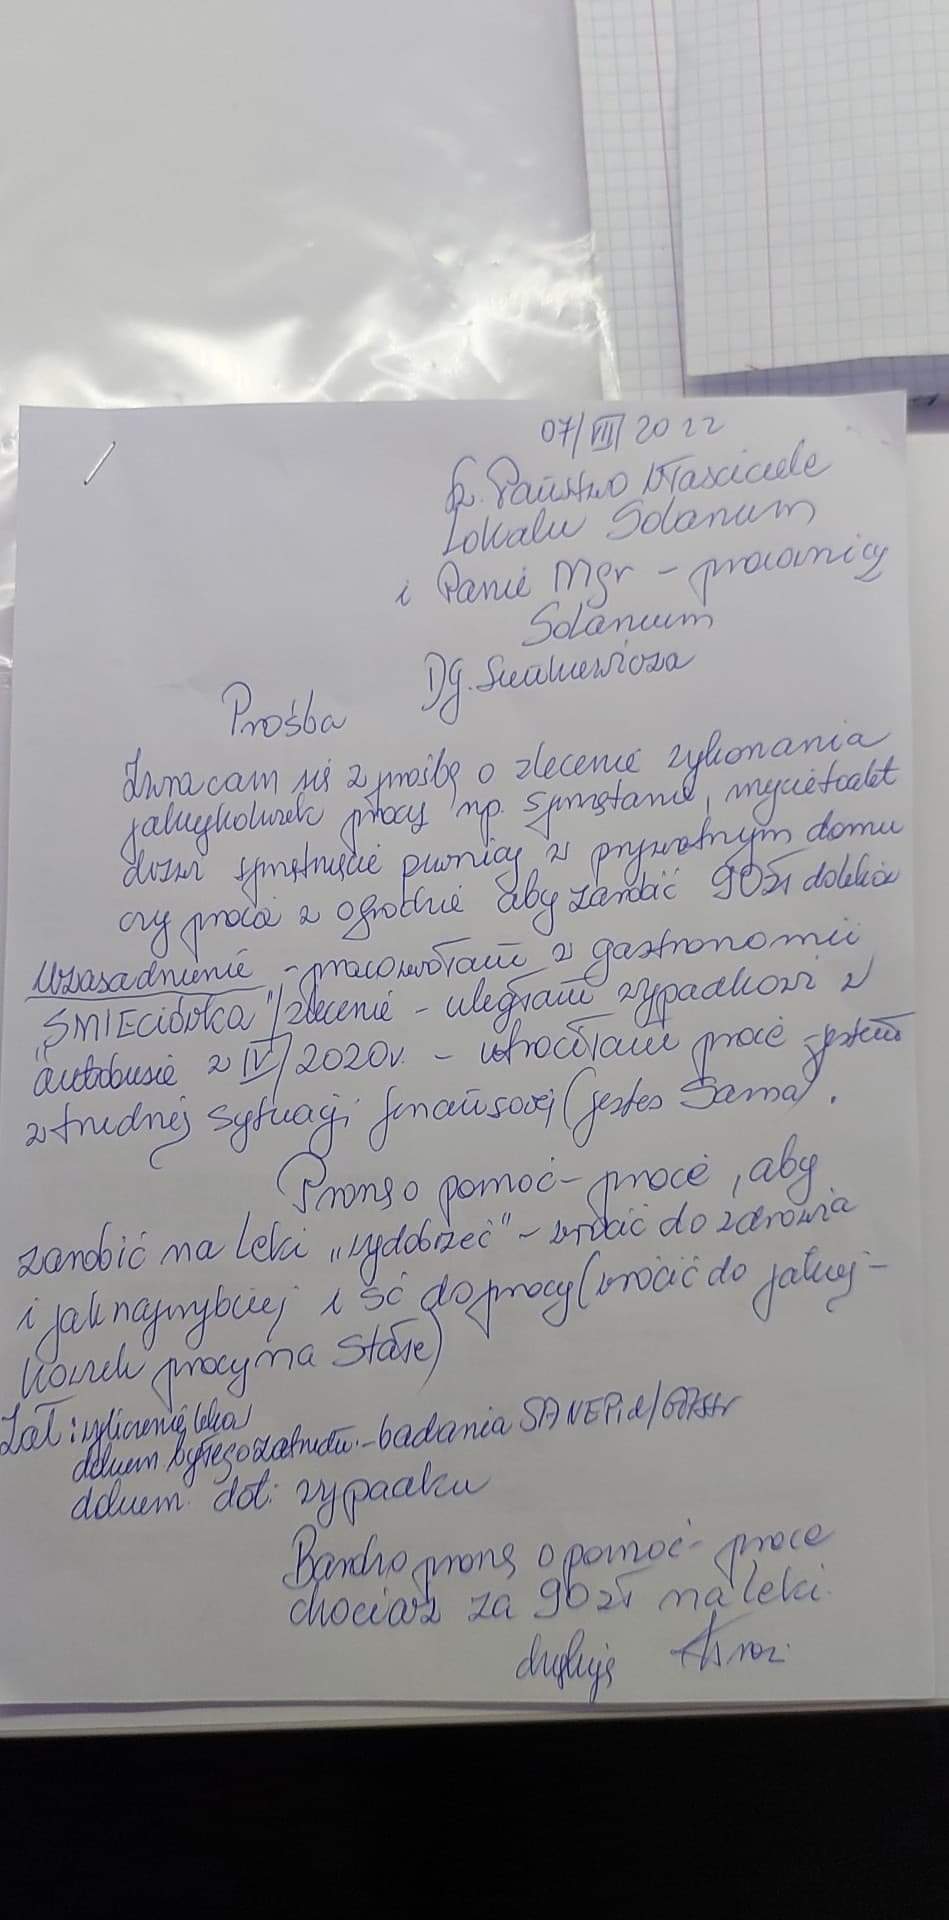 07/VII/2022
Sz. Państwo Właściciele
Lokalu Solanum
i Panie Mgr - pracownicy
Solanum
Prośba
Zwracam się z prośbą o zlecenie wykonania
jakiejkolwiek pracy np. sprzątanie, mycie toalet
sprzątnięcie piwnicy w prywatnym domu
czy praca w ogrodzie aby zarobić 90zł
Uzasadnienie - pracowałam w gastronomii
"ŚMIECIÓWKA"/zlecenie - uległam wypadkowi w
autobusie w IV/2020r. - utraciłam pracę - jestem
w trudnej sytuacji finansowej (jestem sama).
Proszę o pomoc - pracę, aby
zarobić na leki "wydobrzeć" - wrócić do zdrowia
i jak najszybciej iść do pracy (wrócić do jakiej-
kolwiek pracy na stałe)
Zał: wyliczenie leka
dokum. byłego zatrudn. - badania SANEPid/
dokum. dot. wypadku
Bardzo proszę o pomoc - pracę
chociaż za 90 zł na leki.
dziękuję